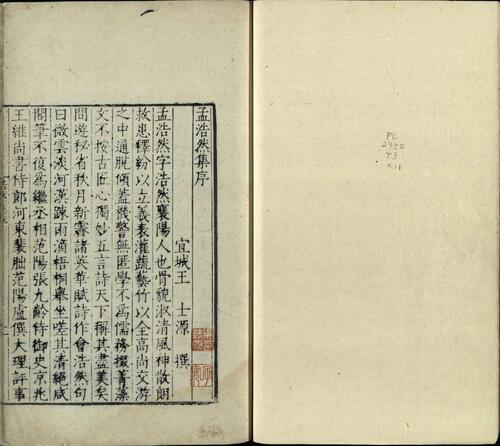 孟浩然集序
宜城王 士源 撰
孟浩然字浩然襄陽人也骨貌淑清風神散朗
救患釋紛以立義表灌蔬藝竹以全高尚交游
之中通脫傾蓋機警無匿學不爲儒務掇菁藻
文不按古匠心獨妙五言詩天下稱其盡美矣
間遊秘省秋月新霽諸英華賦詩作會浩然句
曰微雲淡河漢踈雨滴梧桐舉坐嗟其清絕咸
閣筆不復爲繼丞相范陽張九齡侍御史京兆
王維尚書侍郎河東裴朏范陽盧僎大理評事
PL
2450
T3
v.11